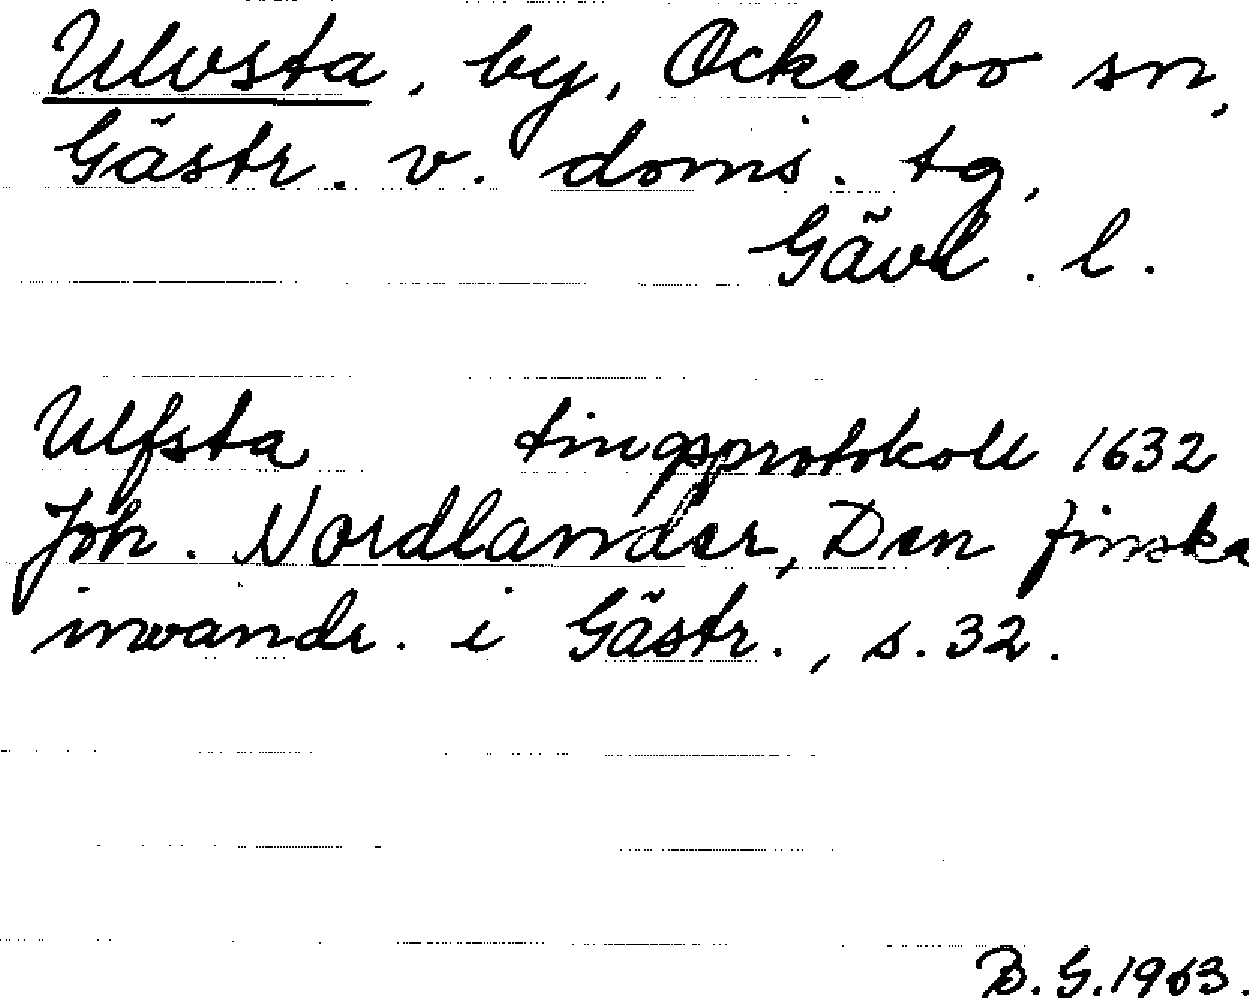 Ulvsta, by, Ockelbo sn,
Gästr. v. doms. tg,
Gävl. l.
Ulfsta tingsprotokoll 1632
Joh. Nordlander, Den finska
invandr. i Gästr., s. 32.
B. G. 1963.